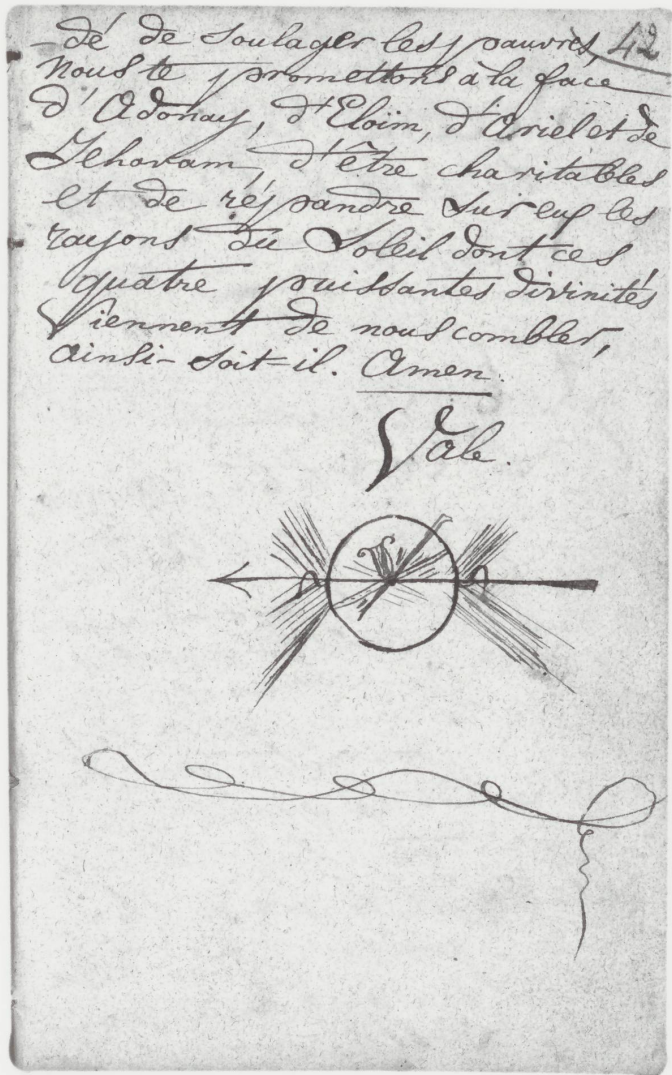 -dé de soulager les pauvres, 42
nous te promettons à la face
d'Adonay, d'Eloïm, d'Ariel et de
Jehovam, d'être charitables
et de répandre sur eux les
rayons du Soleil dont ces
quatre puissantes divinités
Viennent de nous combler,
ainsi-soit-il. Amen.
Vale.